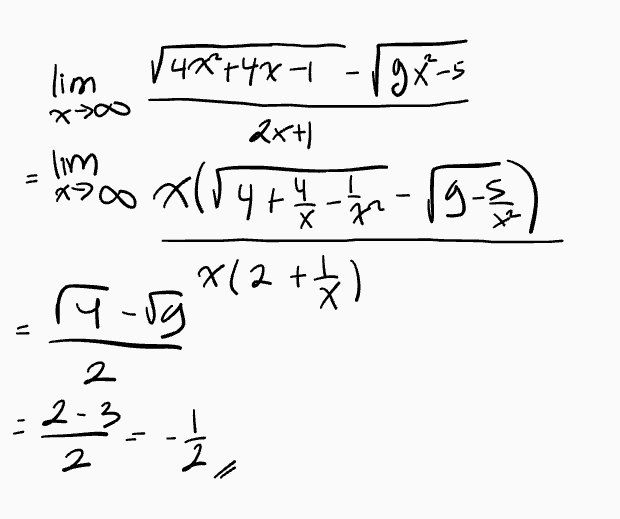 lim x→∞ (√(4x²+4x-1) - √(9x²-5)) / (2x+1)
= lim x→∞ x(√(4+4/x-1/x²) - √(9-5/x²)) / x(2+1/x)
= (√4 - √9) / 2
= (2-3)/2 = -1/2 //